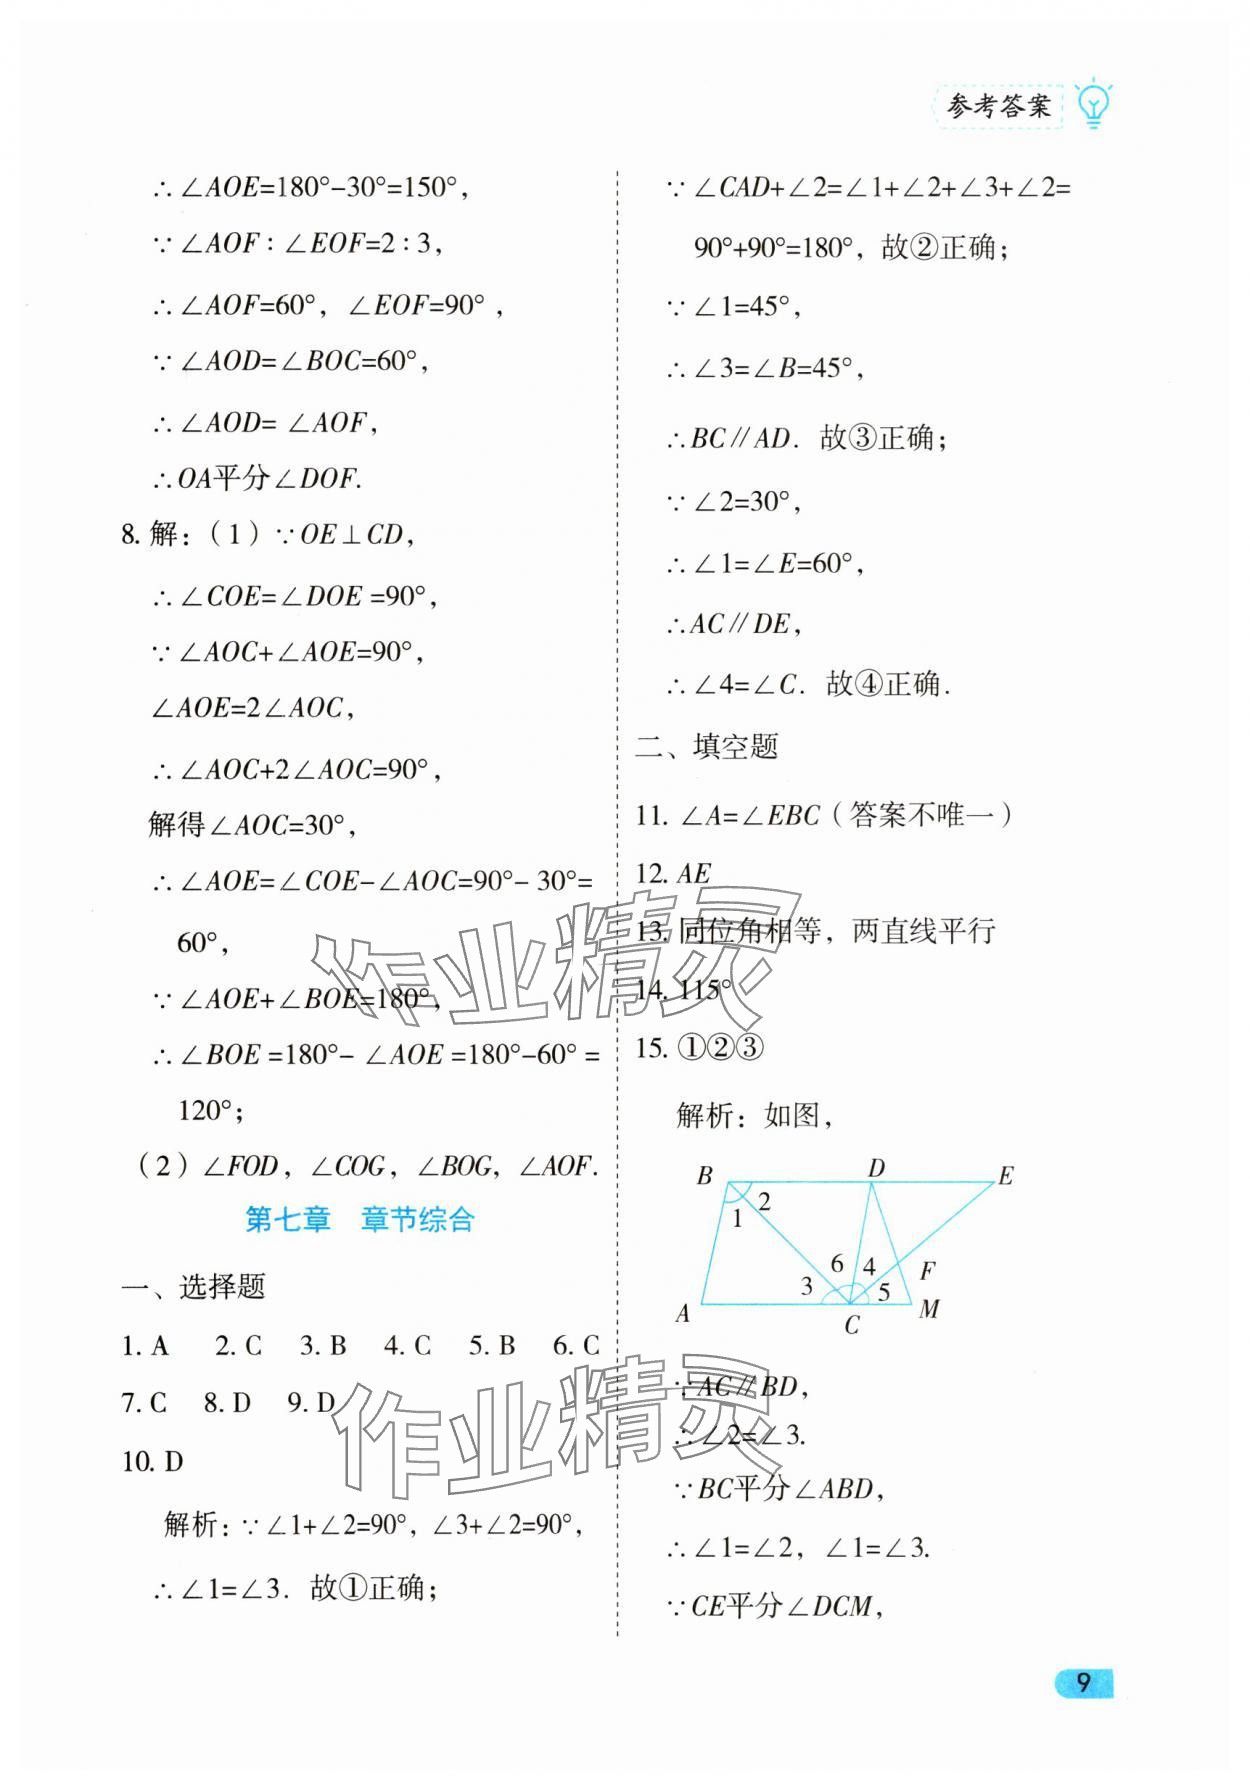 参考答案
∴∠AOE=180°-30°=150°,
∵∠AOF∶∠EOF=2∶3,
∴∠AOF=60°, ∠EOF=90°,
∵∠AOD=∠BOC=60°,
∴∠AOD= ∠AOF,
∴OA平分∠DOF.
8. 解：（1）∵OE⊥CD,
∴∠COE=∠DOE =90°,
∵∠AOC+∠AOE=90°,
∠AOE=2∠AOC,
∴∠AOC+2∠AOC=90°,
解得∠AOC=30°,
∴∠AOE=∠COE-∠AOC=90°- 30°=
60°,
∵∠AOE+∠BOE=180°,
∴∠BOE =180°- ∠AOE =180°-60° =
120°;
（2）∠FOD, ∠COG, ∠BOG, ∠AOF.
第七章 章节综合
一、选择题
1. A 2. C 3. B 4. C 5. B 6. C
7. C 8. D 9. D
10. D
解析：∵∠1+∠2=90°, ∠3+∠2=90°,
∴∠1=∠3. 故①正确；
∵∠CAD+∠2=∠1+∠2+∠3+∠2=
90°+90°=180°, 故②正确；
∵∠1=45°,
∴∠3=∠B=45°,
∴BC∥AD. 故③正确；
∵∠2=30°,
∴∠1=∠E=60°,
∴AC∥DE,
∴∠4=∠C. 故④正确.
二、填空题
11. ∠A=∠EBC（答案不唯一）
12. AE
13. 同位角相等，两直线平行
14. 115°
15. ①②③
解析：如图，
B D E
1 2
6 4 F
3 5
A C M
∵AC∥BD,
∴∠2=∠3.
∵BC平分∠ABD,
∴∠1=∠2, ∠1=∠3.
∵CE平分∠DCM,
9
作业精灵
作业精灵